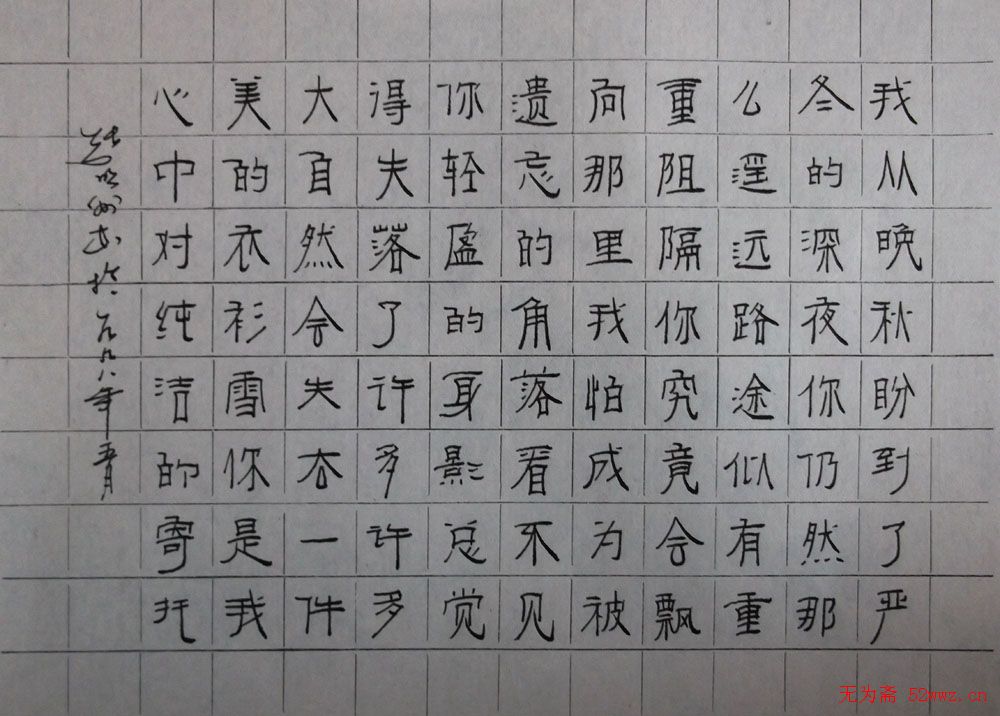 我从晚秋盼到了严
冬的深夜你仍然那
么遥远路途似有重
重阻隔你究竟会飘
向那里我怕成为被
遗忘的角落看不见
你轻盈的身影总觉
得失落了许多许多
大自然会失去一件
美的衣衫雪你是我
心中对纯洁的寄托
书於一九九八年五月
无为斋 52wwz.cn